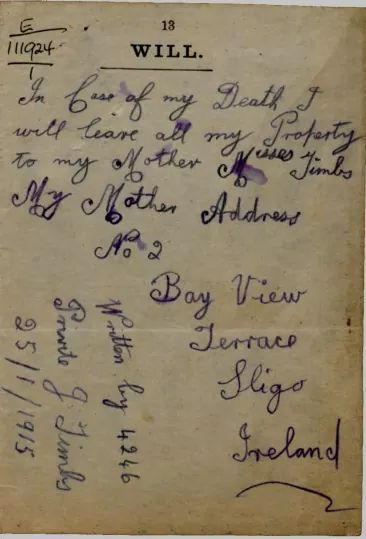 E
111924
1
13
WILL.
In Case of my Death I
will leave all my Property
to my Mother Misses Timbs
My Mother Address
No 2
Bay View
Terrace
Sligo
Ireland
Written by 4246
Private J. Timbs
25/1/1915